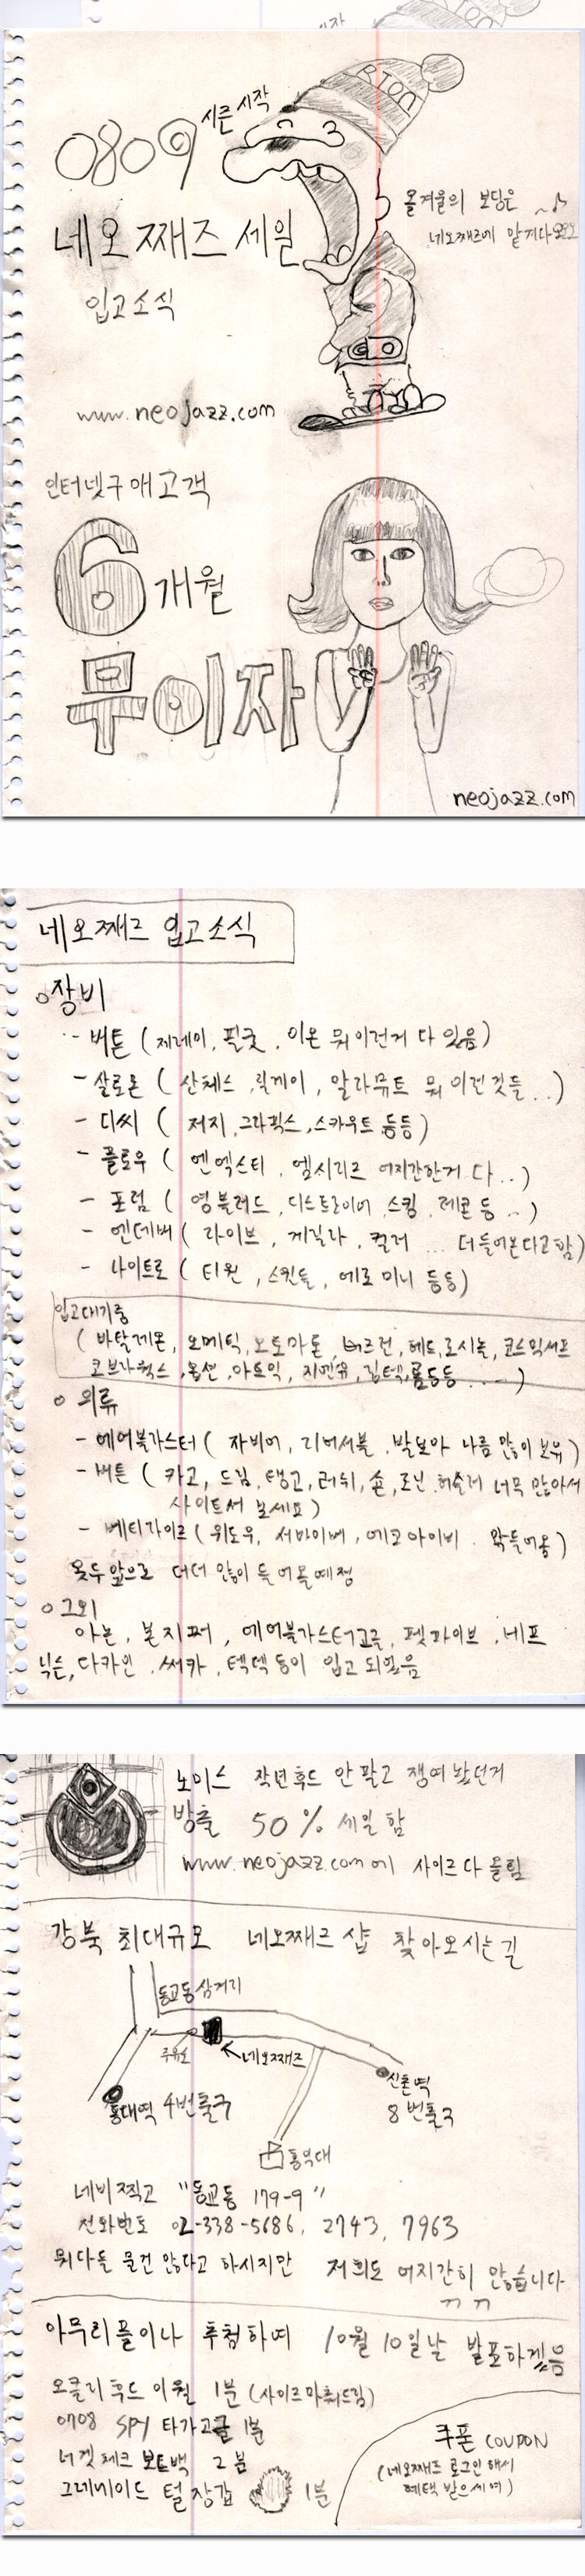 RION
0809 시즌 시작
네오 째즈 세일
입고소식
올겨울의 보딩은
네오째즈에 맡기다오오
www.neojazz.com
인터넷구매고객
6개월
무이자
neojazz.com
네오째즈 입고소식
장비
- 버튼 (제레미, 필굿, 이온 뭐 이런거 다 있음)
- 살로몬 (산체스, 릴게이, 말라뮤트 뭐 이런 것들..)
- 디씨 (저지, 그라픽스, 스카우트 등등)
- 플로우 (엔엑스티, 엠시리즈 어지간한거 다..)
- 포럼 (영블러드, 디스트로이어, 스킴, 레콘 등..)
- 엔데버 (라이브, 게릴라, 컬러 ... 더 들어온다고 함)
- 나이트로 (티원, 스윈들, 에로 미니 등등)
입고대기중
(바탈레온, 오메틱, 오토마톤, 버즈런, 헤드, 로시놀, 코스믹서프
코브라웍스, 옵션, 아토믹, 지엔유, 립텍, 롬 등등 ....)
의류
- 에어블라스터 (자비어, 리어서블, 발보아 나름 많이 보유)
- 버튼 (카고, 드림, 탱고, 러쉬, 숀, 로닌, 허슬러 너무 많아서
사이트서 보세요)
- 베티가이르 (위도우, 서바이버, 에코 아이비. 왁 들어옴)
옷두 앞으로 더더 많이 들어올예정
그외
아논, 본지퍼, 에어블라스터고글, 펫파이브, 네프
닉슨, 다카인, 써카, 텍덱 등이 입고 되었음
노이스 작년후드 안 팔고 쟁여 놨던거
방출 50% 세일 함
www.neojazz.com 에 사이즈 다 올림
강북 최대규모 네오째즈 샵 찾아오시는 길
동교동삼거리
주유소
네오째즈
홍대역 4번출구
신촌역
8번출구
홍익대
네비 찍고 "동교동 179-9"
전화번호 02-338-5686, 2743, 7963
뭐다들 물건 많다고 하시지만 저희도 어지간히 많습니다
ㄲㄲ
아무리플이나 추첨하여 10월 10일날 발표하겠음
오클리 후드 이월 1분 (사이즈 맞춰드림)
0708 SPY 타가고글 1분
너겟 체크 보트백 2분
그레네이드 털장갑 1분
쿠폰 COUPON
(네오째즈 로그인 해서
혜택 받으세여)